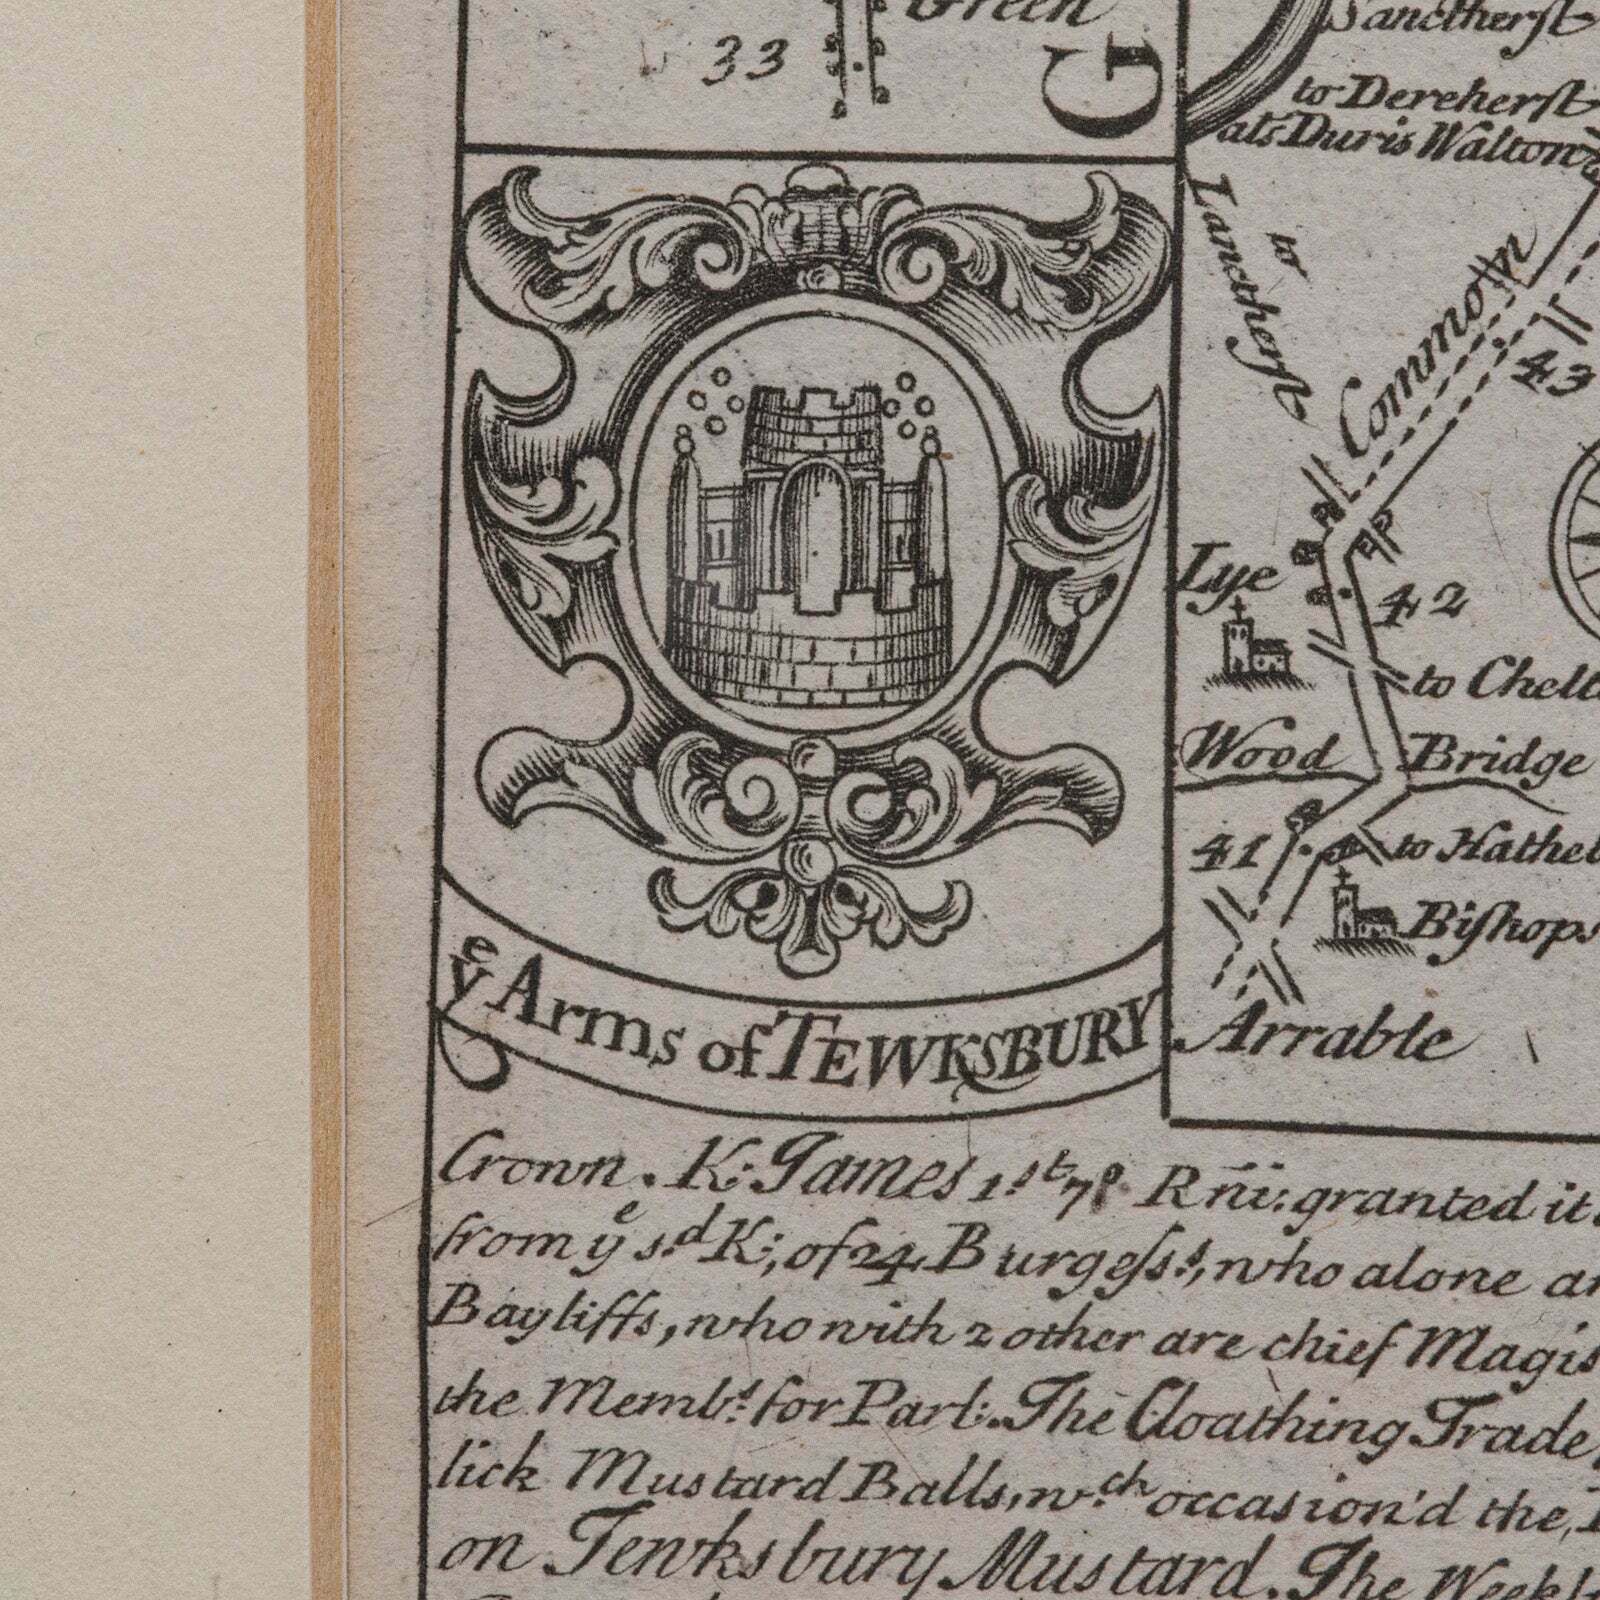 Green
33
G
Sanctherst
to Dereherst
als Duris Walton
to
Lanctherst
Common
43
Lye
42
to Chelt
Wood Bridge
41
to Hathel
Bishops
Arrable
yᵉ Arms of TEWKSBURY
Crown. K: James 1.ˢᵗ 7º Rñi: granted it
from yᵉ s.ᵈ K;, of 24 Burgess.ˢ, who alone
Bayliffs, who with 2 other are chief Magis
the Memb.ˢ for Parl:. The Cloathing Trade,
lick Mustard Balls, w.ᶜʰ occasion'd the,
on Tewksbury Mustard. The Weekl